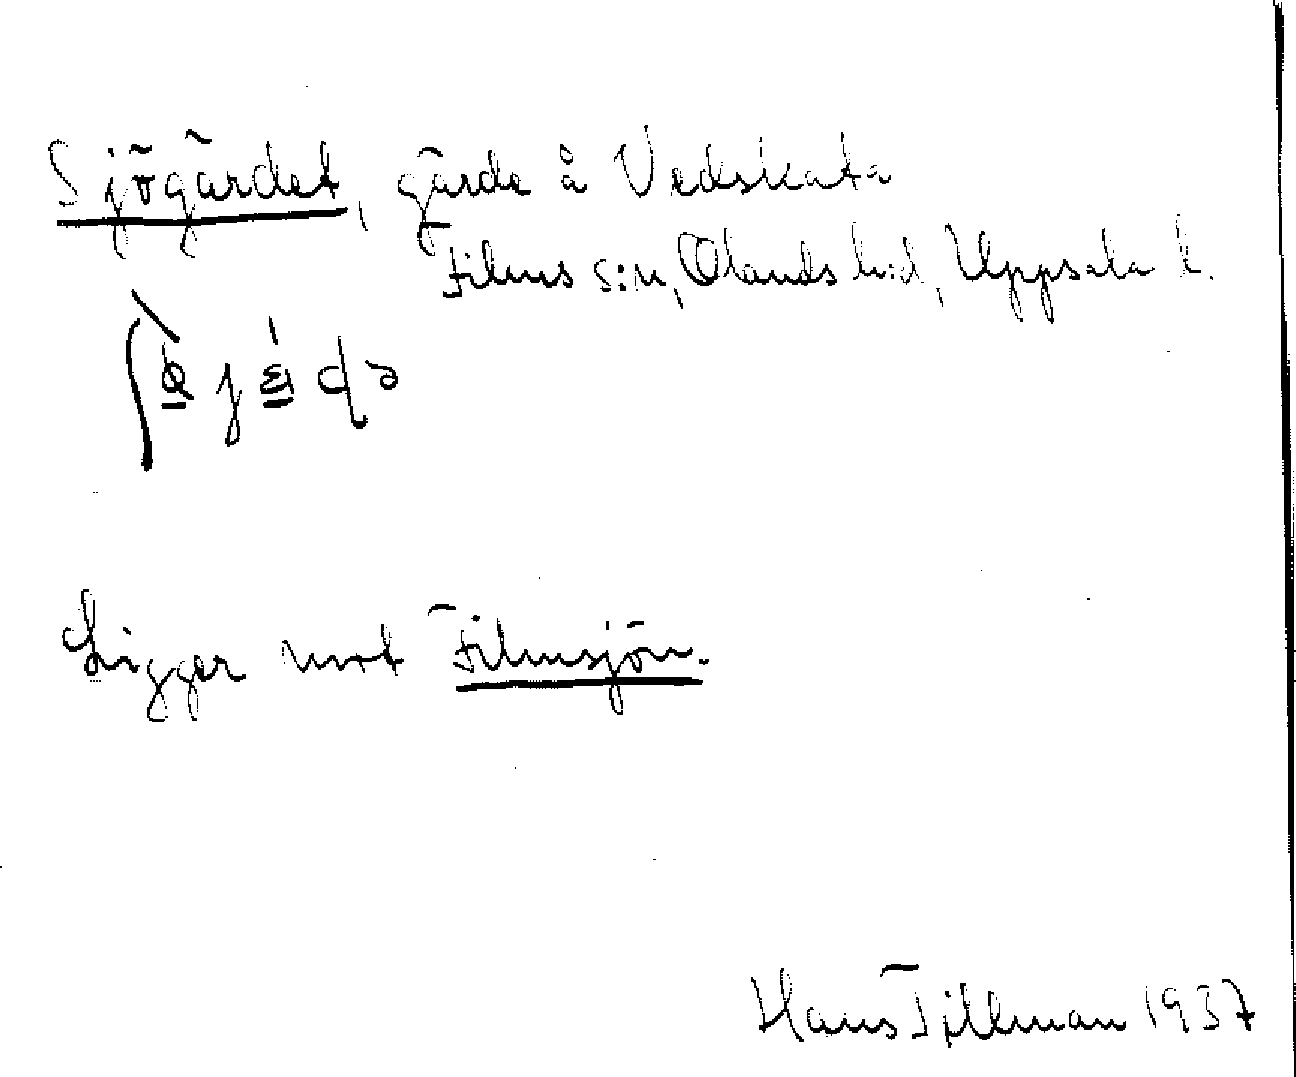 Sjögärdet, gärde å Vedskata
Films s:n, Olands h:d, Uppsala l.
Ligger mot Filmsjön.
Hans Tillman 1937